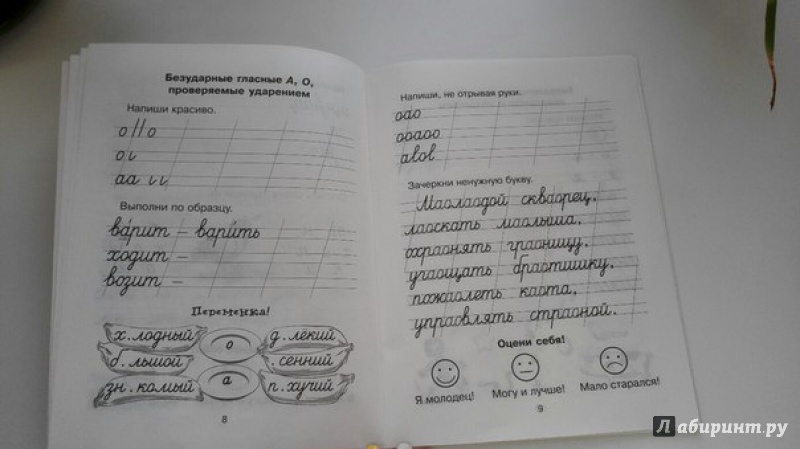 Безударные гласные А, О,
проверяемые ударением
Напиши красиво.
о // о
о и
а а и и
Выполни по образцу.
ва́рит – вари́ть
ходит –
возит –
Переменка!
х.лодный
о
д.лёкий
б.льшой
.сенний
зн.комый
а
п.хучий
8
Напиши, не отрывая руки.
оао
ооаоо
Зачеркни ненужную букву.
Маолаодой скваорец,
лаоскать маолыша,
охраонять граоницу,
угаощать браотишку,
пожаолеть каота,
управлять страоной.
Оцени себя!
Я молодец!
Могу и лучше!
Мало старался!
9
Лабиринт.ру